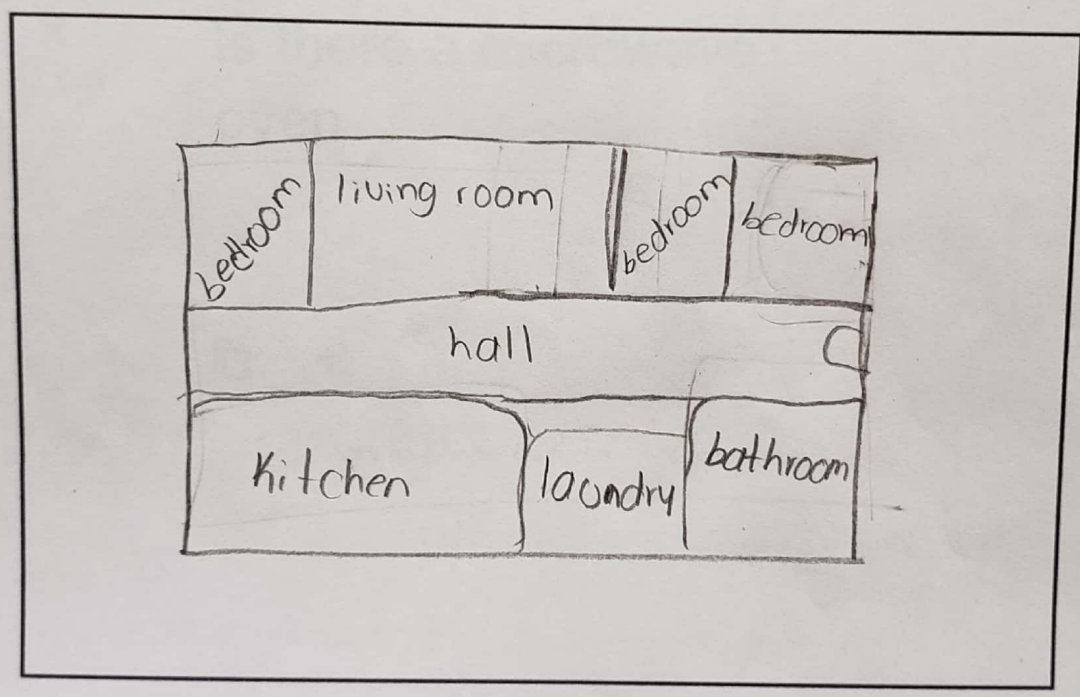 bedroom
living room
bedroom
bedroom
hall
Kitchen
laundry
bathroom